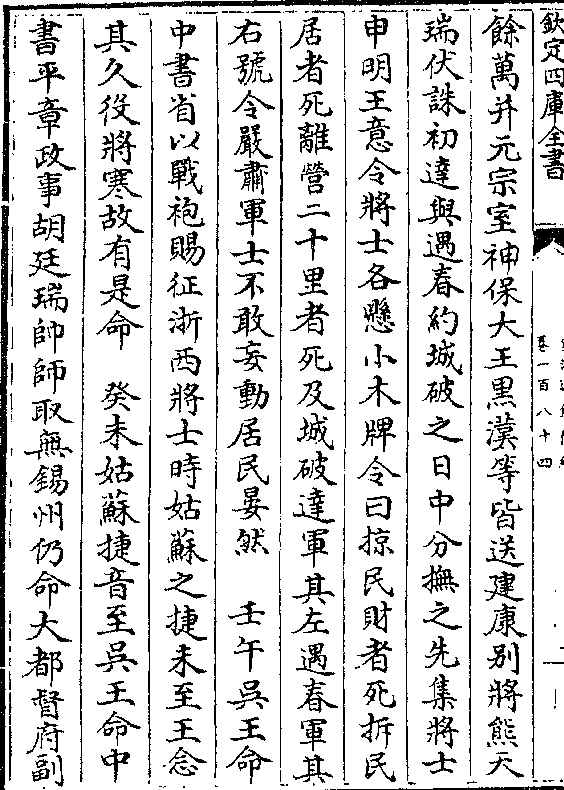 欽定四庫全書
卷一百八十四
餘萬并元宗室神保大王黑漢等皆送建康别將熊天
瑞伏誅初達與遇春約城破之日中分撫之先集將士
申明王意令將士各懸小木牌令曰掠民財者死拆民
居者死離營二十里者死及城破達軍其左遇春軍其
右號令嚴肅軍士不敢妄動居民晏然　壬午吳王命
中書省以戰袍賜征浙西將士時姑蘇之捷未至王念
其久役將寒故有是命　癸未姑蘇捷音至吳王命中
書平章政事胡廷瑞帥師取無錫州仍命大都督府副